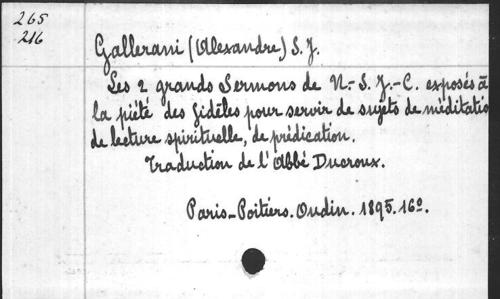 265
216
Gallerani (Alexandre) S. J.
Les 2 grands Sermons de N.-S. J.-C. exposés à
la piété des fidèles pour servir de sujets de méditatio
de lecture spirituelle, de prédication.
Traduction de l'Abbé Ducroux.
Paris-Poitiers. Oudin. 1895. 16º.